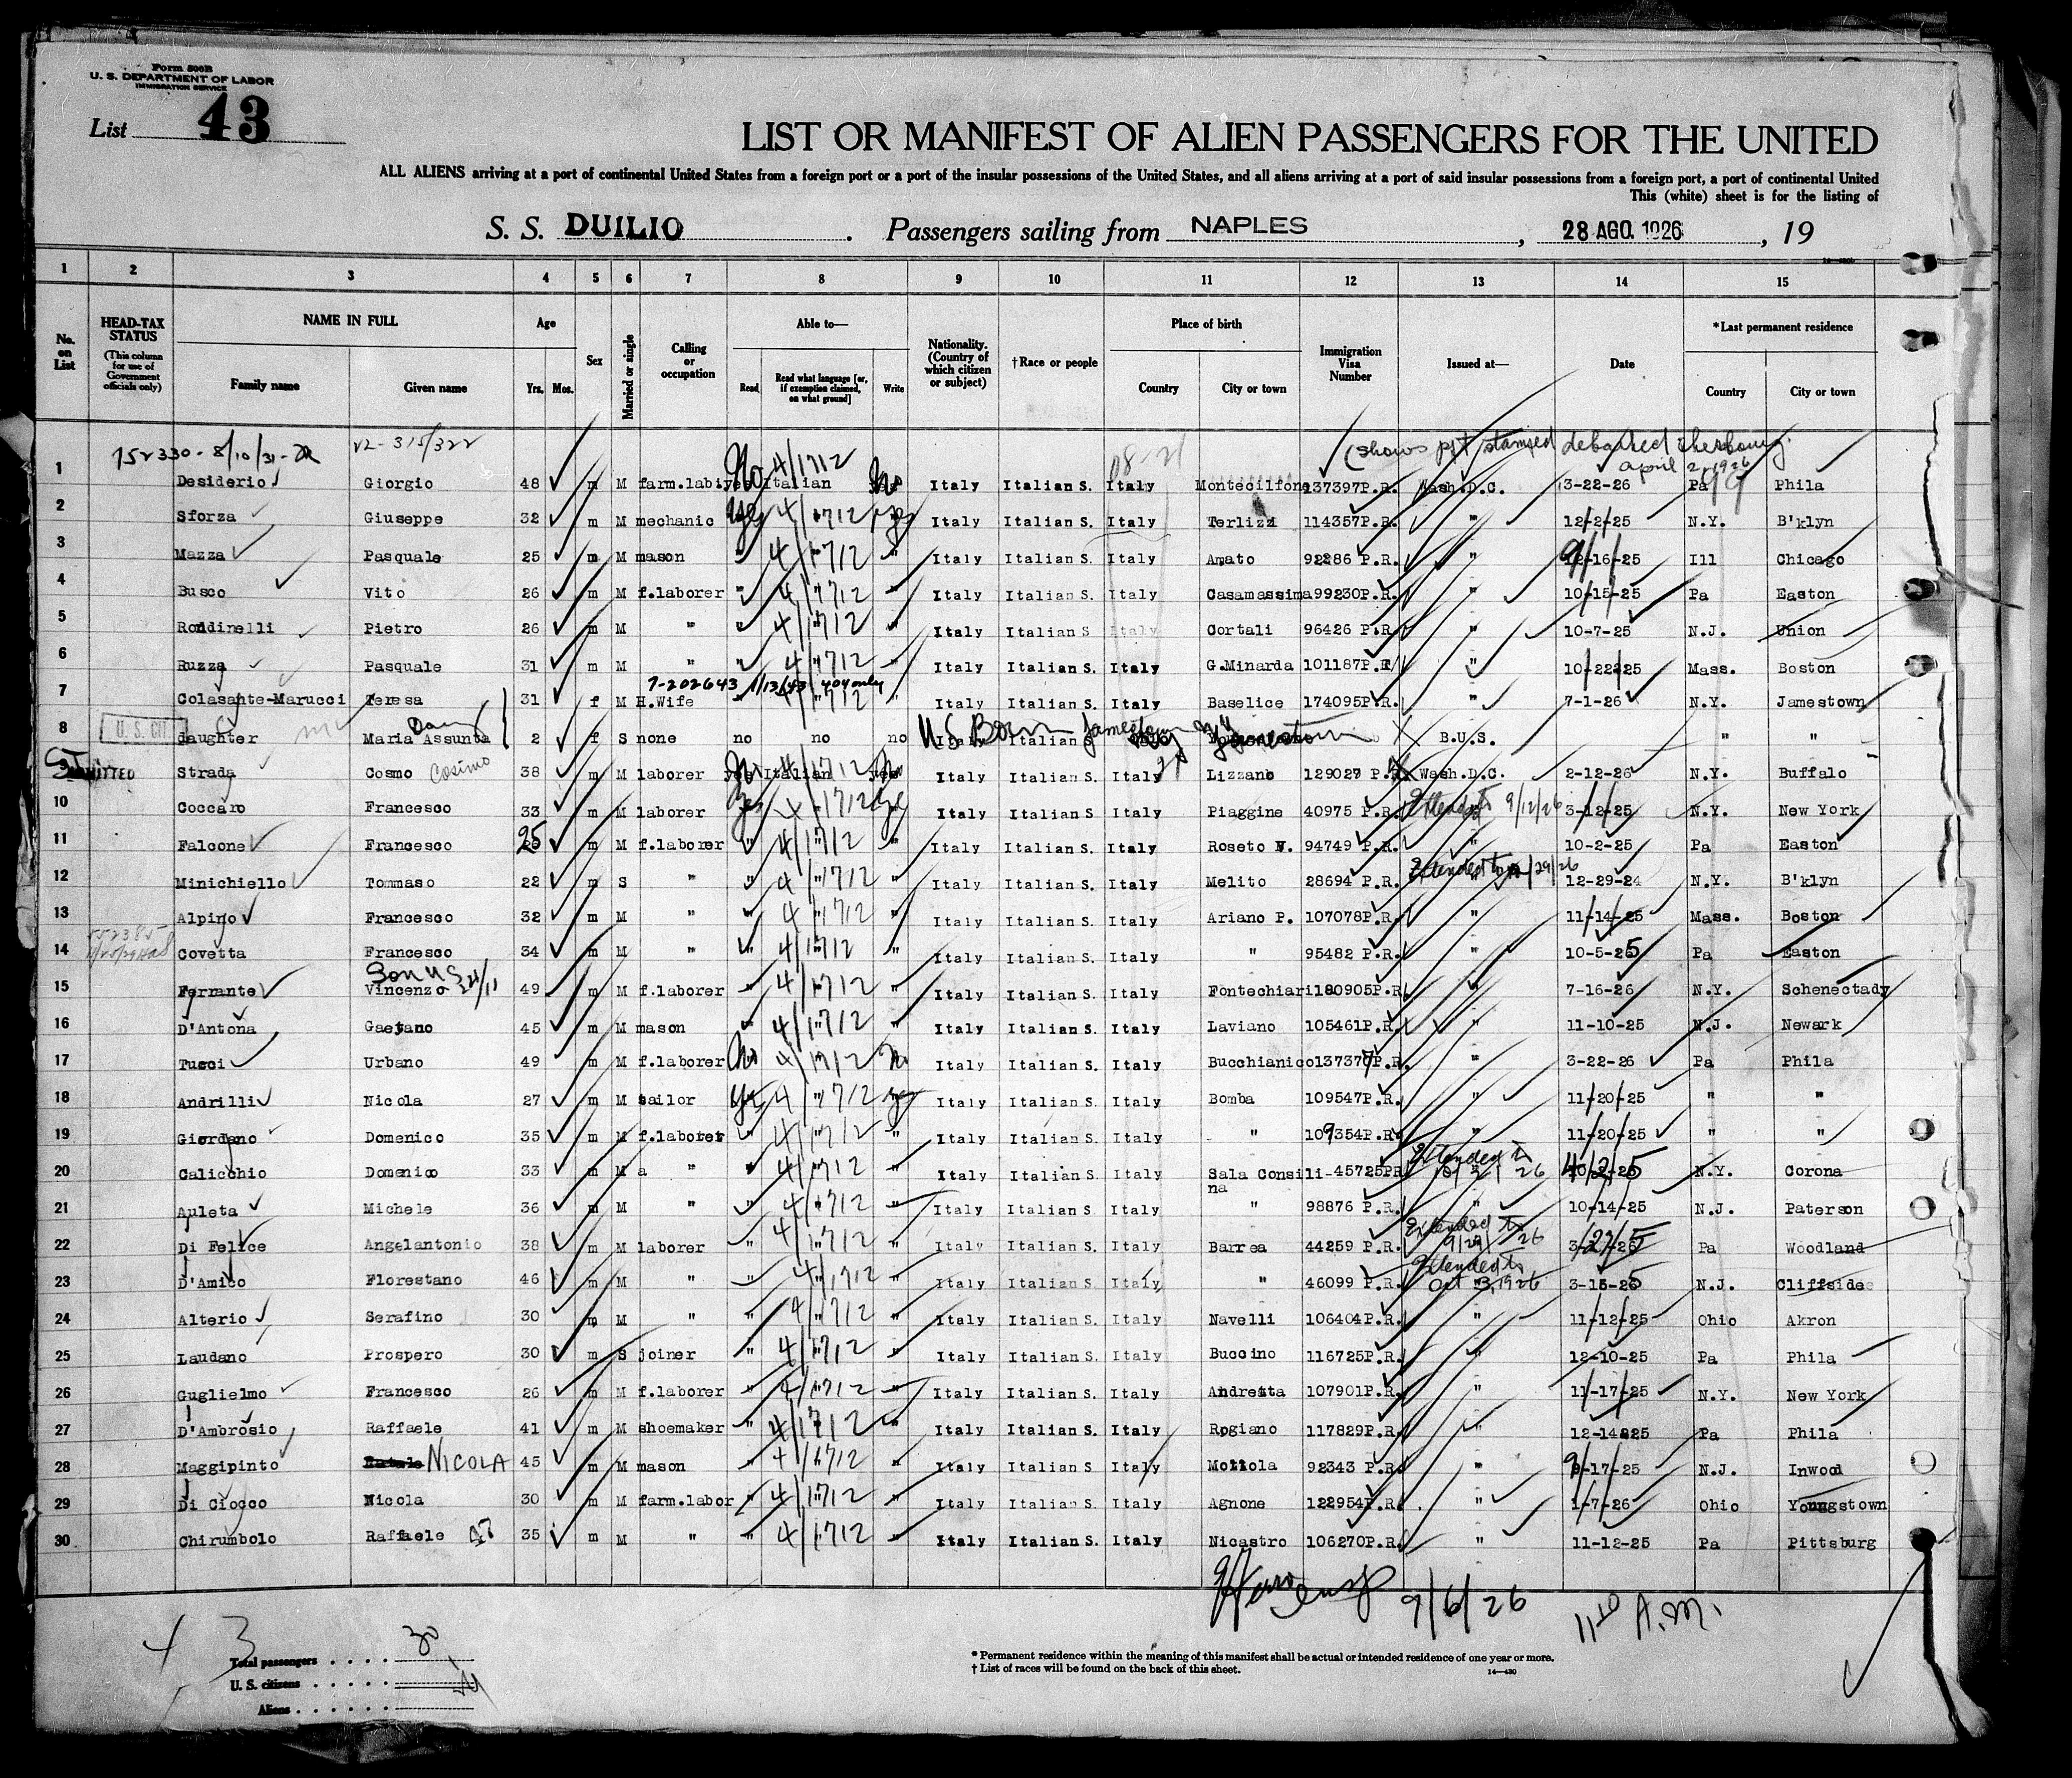 Form 500B
U. S. DEPARTMENT OF LABOR
IMMIGRATION SERVICE
List 43
LIST OR MANIFEST OF ALIEN PASSENGERS FOR THE UNITED
ALL ALIENS arriving at a port of continental United States from a foreign port or a port of the insular possessions of the United States, and all aliens arriving at a port of said insular possessions from a foreign port, a port of continental United
This (white) sheet is for the listing of
S. S. DUILIO . Passengers sailing from NAPLES , 28 AGO. 1926 , 19
1 2 3 4 5 6 7 8 9 10 11 12 13 14 15
No. on List
HEAD-TAX STATUS (This column for use of Government officials only)
NAME IN FULL Family name Given name
Age Yrs. Mos.
Sex
Married or single
Calling or occupation
Able to— Read Read what language [or, if exemption claimed, on what ground] Write
Nationality. (Country of which citizen or subject)
†Race or people
Place of birth Country City or town
Immigration Visa Number
Issued at—
Date
*Last permanent residence Country City or town
152330 - 8/10/31 (shows ppt stamped debarked Cherbourg April 2, 1926
1 Desiderio Giorgio 48 m M farm.lab Italian No 4/1712 No Italy Italian S. Italy Montecilfone 137397 P.R. Wash.D.C. 3-22-26 Pa Phila
2 Sforza Giuseppe 32 m M mechanic yes 4/1712 yes Italy Italian S. Italy Terlizzi 114357P.R. " 12-2-25 N.Y. B'klyn
3 Mazza Pasquale 25 m M mason " 4/1712 " Italy Italian S. Italy Amato 92286 P.R. " 9-16-25 Ill Chicago
4 Busco Vito 26 m M f.laborer " 4/1712 " Italy Italian S. Italy Casamassima 99230P.R. " 10-15-25 Pa Easton
5 Rondinelli Pietro 26 m M " " 4/1712 " Italy Italian S Italy Cortali 96426 P.R. " 10-7-25 N.J. Union
6 Ruzza Pasquale 31 m M " " 4/1712 " Italy Italian S. Italy G.Minarda 101187P.R " 10-22-25 Mass. Boston
7-202643 1/13/43 404 only
7 Colasante-Marucci Teresa 31 f M H.Wife " 4/1712 " Italy Italian S. Italy Baselice 174095P.R. " 7-1-26 N.Y. Jamestown
8 U.S. CIT. daughter Maria Assunta 2 f S none no no no U.S. Born Jamestown Italy Italian S B.U.S. " "
9 Strada Cosmo Cosimo 38 m M laborer Italian No 4/1712 No Italy Italian S. Italy Lizzano 129027 P.R. Wash.D.C. 2-12-26 N.Y. Buffalo
10 Coccaro Francesco 33 m M laborer yes 4/1712 yes Italy Italian S. Italy Piaggine 40975 P.R. Extended to 9/12/26 3-12-25 N.Y. New York
11 Falcone Francesco 25 m M f.laborer " 4/1712 " Italy Italian S. Italy Roseto V. 94749 P.R. " 10-2-25 Pa Easton
12 Minichiello Tommaso 22 m S " " 4/1712 " Italy Italian S. Italy Melito 28694 P.R. Extended to 12-29-24 N.Y. B'klyn
13 Alpino Francesco 32 m M " " 4/1712 " Italy Italian S. Italy Ariano P. 107078P.R. " 11-14-25 Mass. Boston
14 Covetta Francesco 34 m M " " 4/1712 " Italy Italian S. Italy " 95482 P.R. " 10-5-25 Pa Easton
15 Ferrante Vincenzo 49 m M f.laborer " 4/1712 " Italy Italian S. Italy Fontechiari 180905P.R. " 7-16-26 N.Y. Schenectady
16 D'Antona Gaetano 45 m M mason " 4/1712 " Italy Italian S. Italy Laviano 105461P.R. " 11-10-25 N.J. Newark
17 Tucci Urbano 49 m M f.laborer No 4/1712 No Italy Italian S. Italy Bucchianico 137377P.R. " 3-22-26 Pa Phila
18 Andrilli Nicola 27 m M tailor yes 4/1712 yes Italy Italian S. Italy Bomba 109547P.R. " 11-20-25 " "
19 Giordano Domenico 35 m M f.laborer " 4/1712 " Italy Italian S. Italy " 109354P.R. " 11-20-25 " "
20 Calicchio Domenico 33 m M a " " 4/1712 " Italy Italian S. Italy Sala Consili-na 45725PR Extended to N.Y. Corona
21 Auleta Michele 36 m M " " 4/1712 " Italy Italian S. Italy " 98876 P.R. " 10-14-25 N.J. Paterson
22 Di Felice Angelantonio 38 m M laborer " 4/1712 " Italy Italian S. Italy Barrea 44259 P.R. Extended to 9/29/26 Pa Woodland
23 D'Amico Florestano 46 m M " " 4/1712 " Italy Italian S. Italy " 46099 P.R. Extended to Oct 3, 1926 3-15-25 N.J. Cliffside
24 Alterio Serafino 30 m M " " 4/1712 " Italy Italian S. Italy Navelli 106404P.R. " 11-12-25 Ohio Akron
25 Laudano Prospero 30 m S joiner " 4/1712 " Italy Italian S. Italy Buccino 116725P.R. " 12-10-25 Pa Phila
26 Guglielmo Francesco 26 m M f.laborer " 4/1712 " Italy Italian S. Italy Andretta 107901P.R. " 11-17-25 N.Y. New York
27 D'Ambrosio Raffaele 41 m M shoemaker " 4/1712 " Italy Italian S. Italy Rogiano 117829P.R. " 12-14-25 Pa Phila
28 Maggipinto NICOLA 45 m M mason " 4/1712 " Italy Italian S Italy Mottola 92343 P.R. " 9-17-25 N.J. Inwood
29 Di Ciocco Nicola 30 m M farm.labor " 4/1712 " Italy Italian S Italy Agnone 122954P.R. " 1-7-26 Ohio Youngstown
30 Chirumbolo Raffaele 35 m M " " 4/1712 " Italy Italian S. Italy Nicastro 106270P.R. " 11-12-25 Pa Pittsburg
9/6/26 11 A.M.
3
Total passengers . . . . 30
U. S. citizens . . . . .
Aliens . . . . . .
* Permanent residence within the meaning of this manifest shall be actual or intended residence of one year or more.
† List of races will be found on the back of this sheet. 14—430